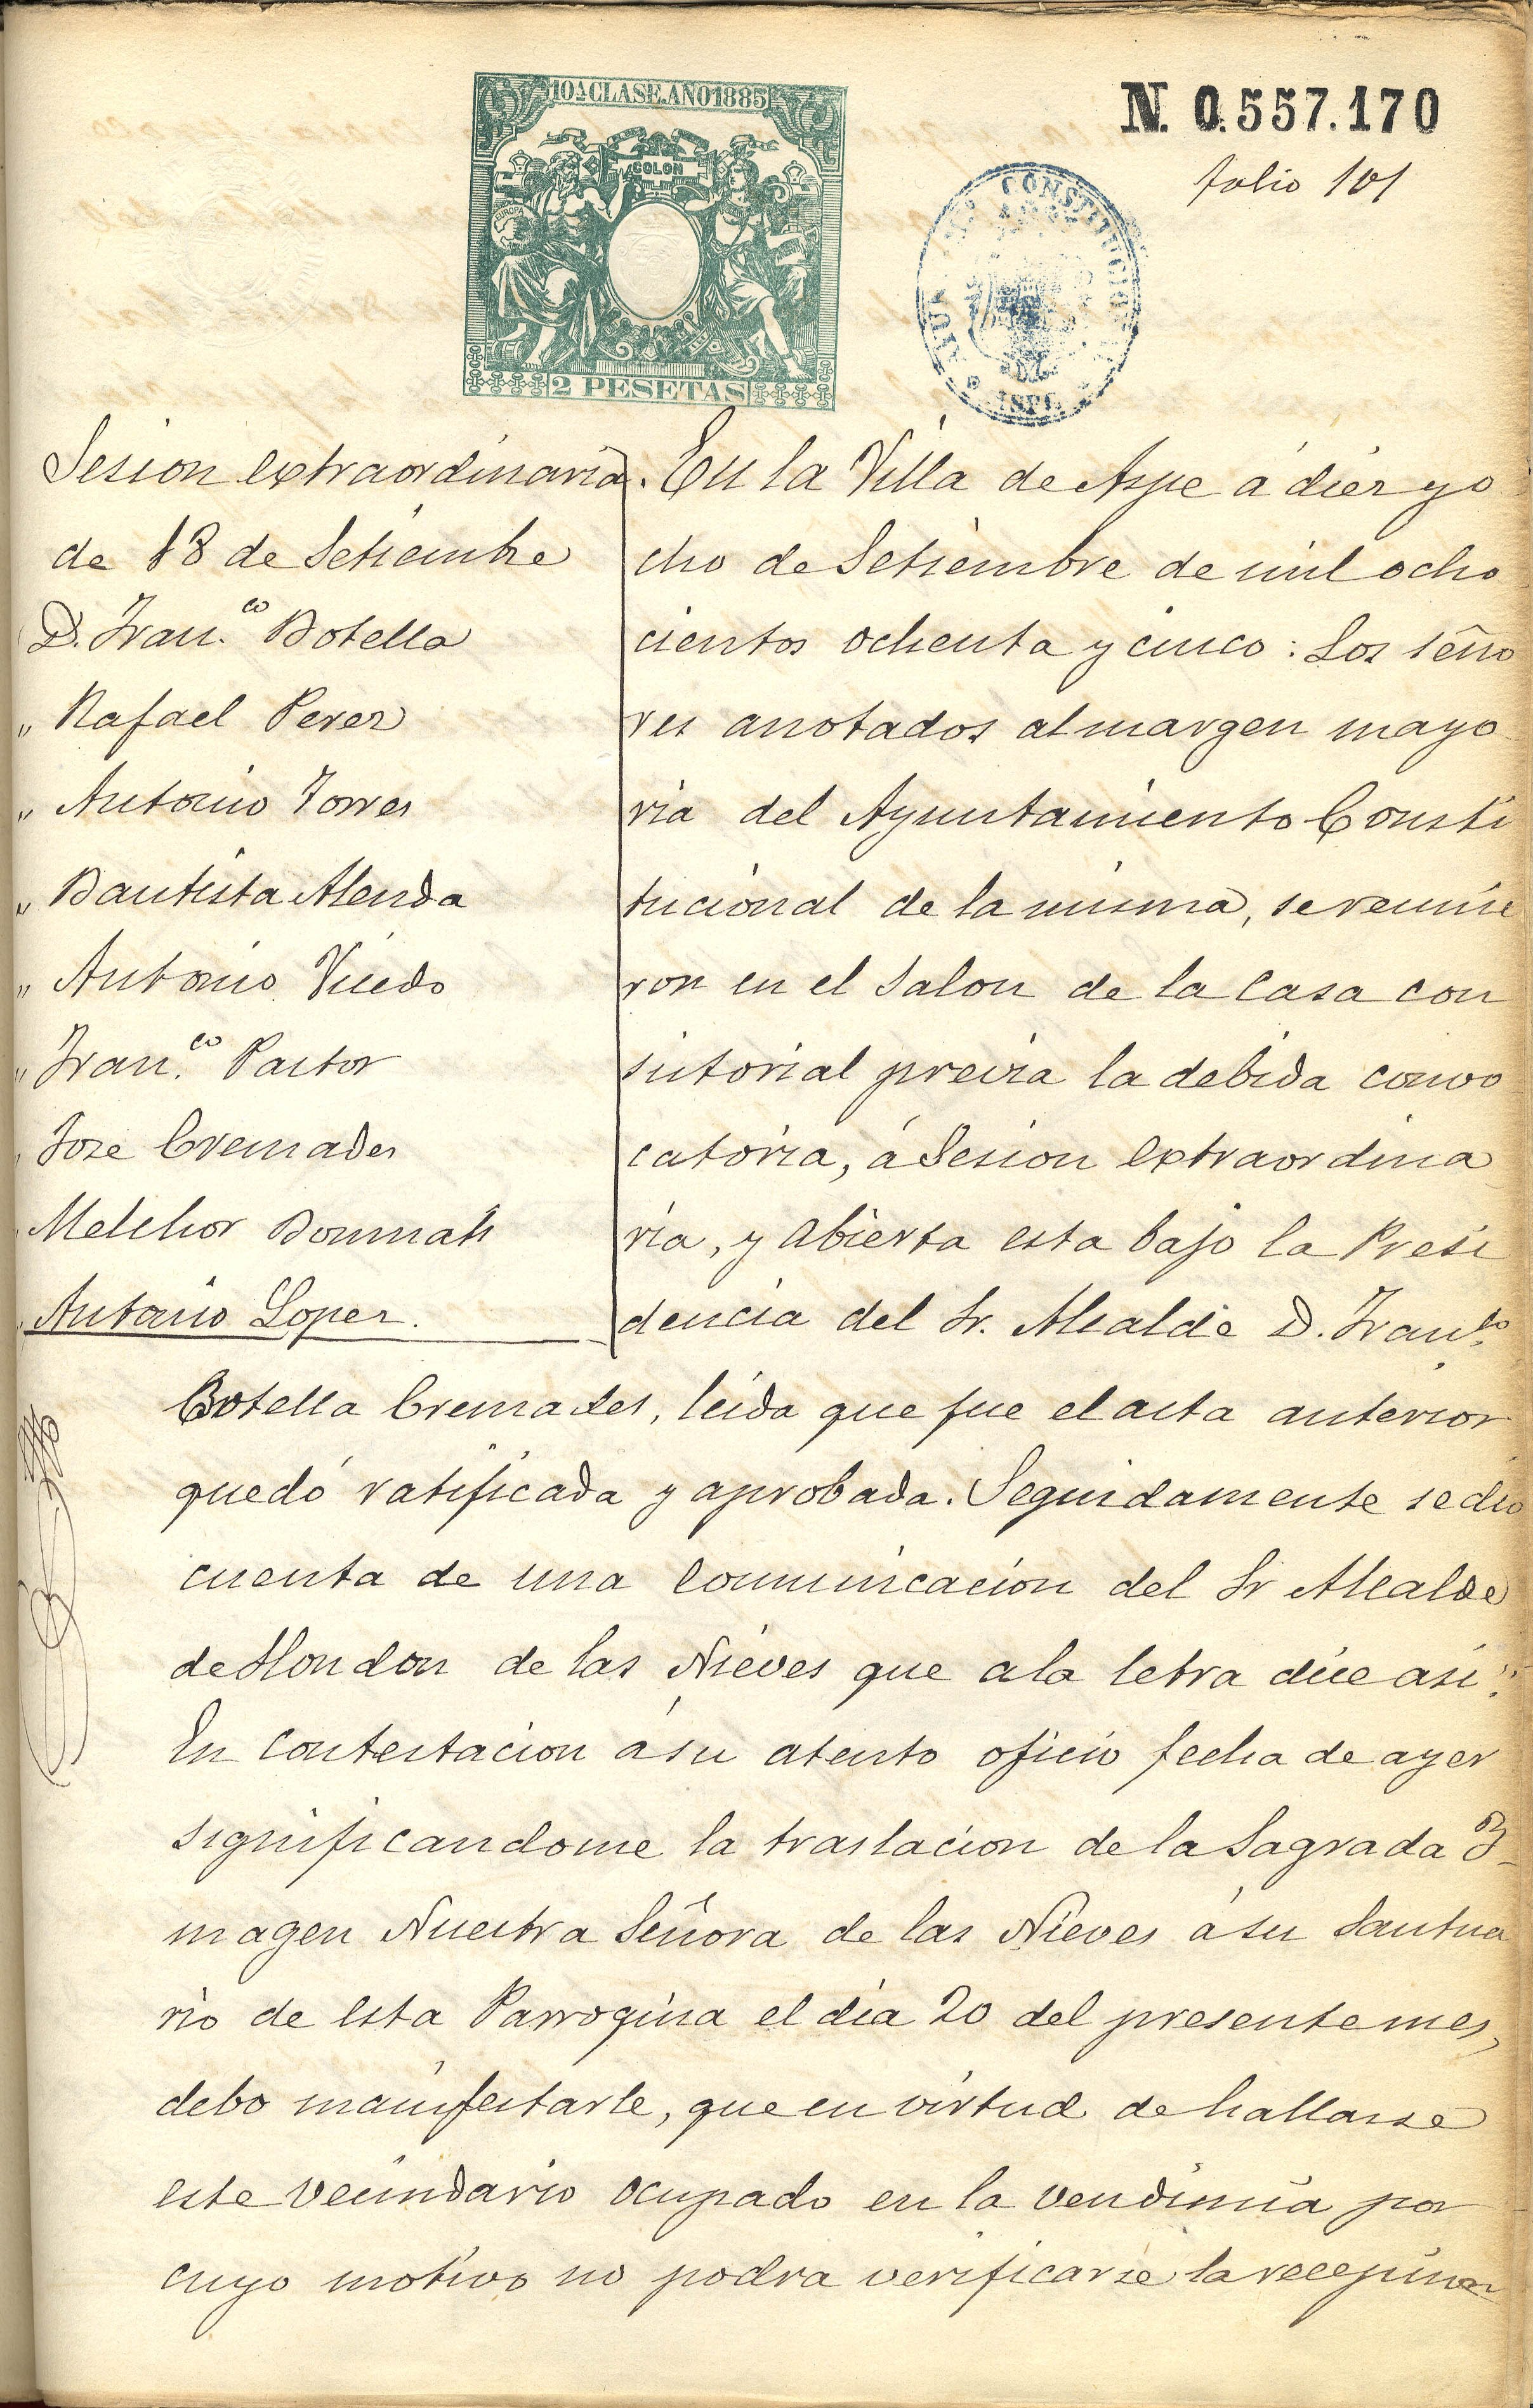 10ª CLASE. AÑO 1885
COLON
EUROPA
2 PESETAS
N. 0.557.170
folio 101
CONSTITUCIONAL
Sesion extraordinaria
de 18 de Setiembre
D. Fran.co Botella
" Rafael Perez
" Antonio Torres
" Bautista Alenda
" Antonio Vicedo
" Fran.co Pastor
" Jose Cremades
" Melchor Bonmati
" Antonio Lopez.
En la Villa de Aspe á diez y o
cho de Setiembre de mil ocho
cientos ochenta y cinco: Los seño
res anotados al margen mayo
ria del Ayuntamiento Consti
tucional de la misma, se reunie
ron en el Salon de la Casa con
sistorial previa la debida convo
catoria, á Sesion extraordina
ria, y abierta esta bajo la Presi
dencia del Sr. Alcalde D. Fran.co
Botella Cremades, leida que fue el acta anterior
quedó ratificada y aprobada. Seguidamente se dio
cuenta de una comunicacion del Sr Alcalde
de Hondon de las Nieves que a la letra dice asi:"
En contestacion á su atento oficio fecha de ayer
significandome la traslacion de la Sagrada I-
magen Nuestra Señora de las Nieves á su Santua
rio de esta Parroquia el dia 20 del presente mes,
debo manifestarle, que en virtud de hallarse
este vecindario ocupado en la vendimia por
cuyo motivo no podra verificarse la recepcion